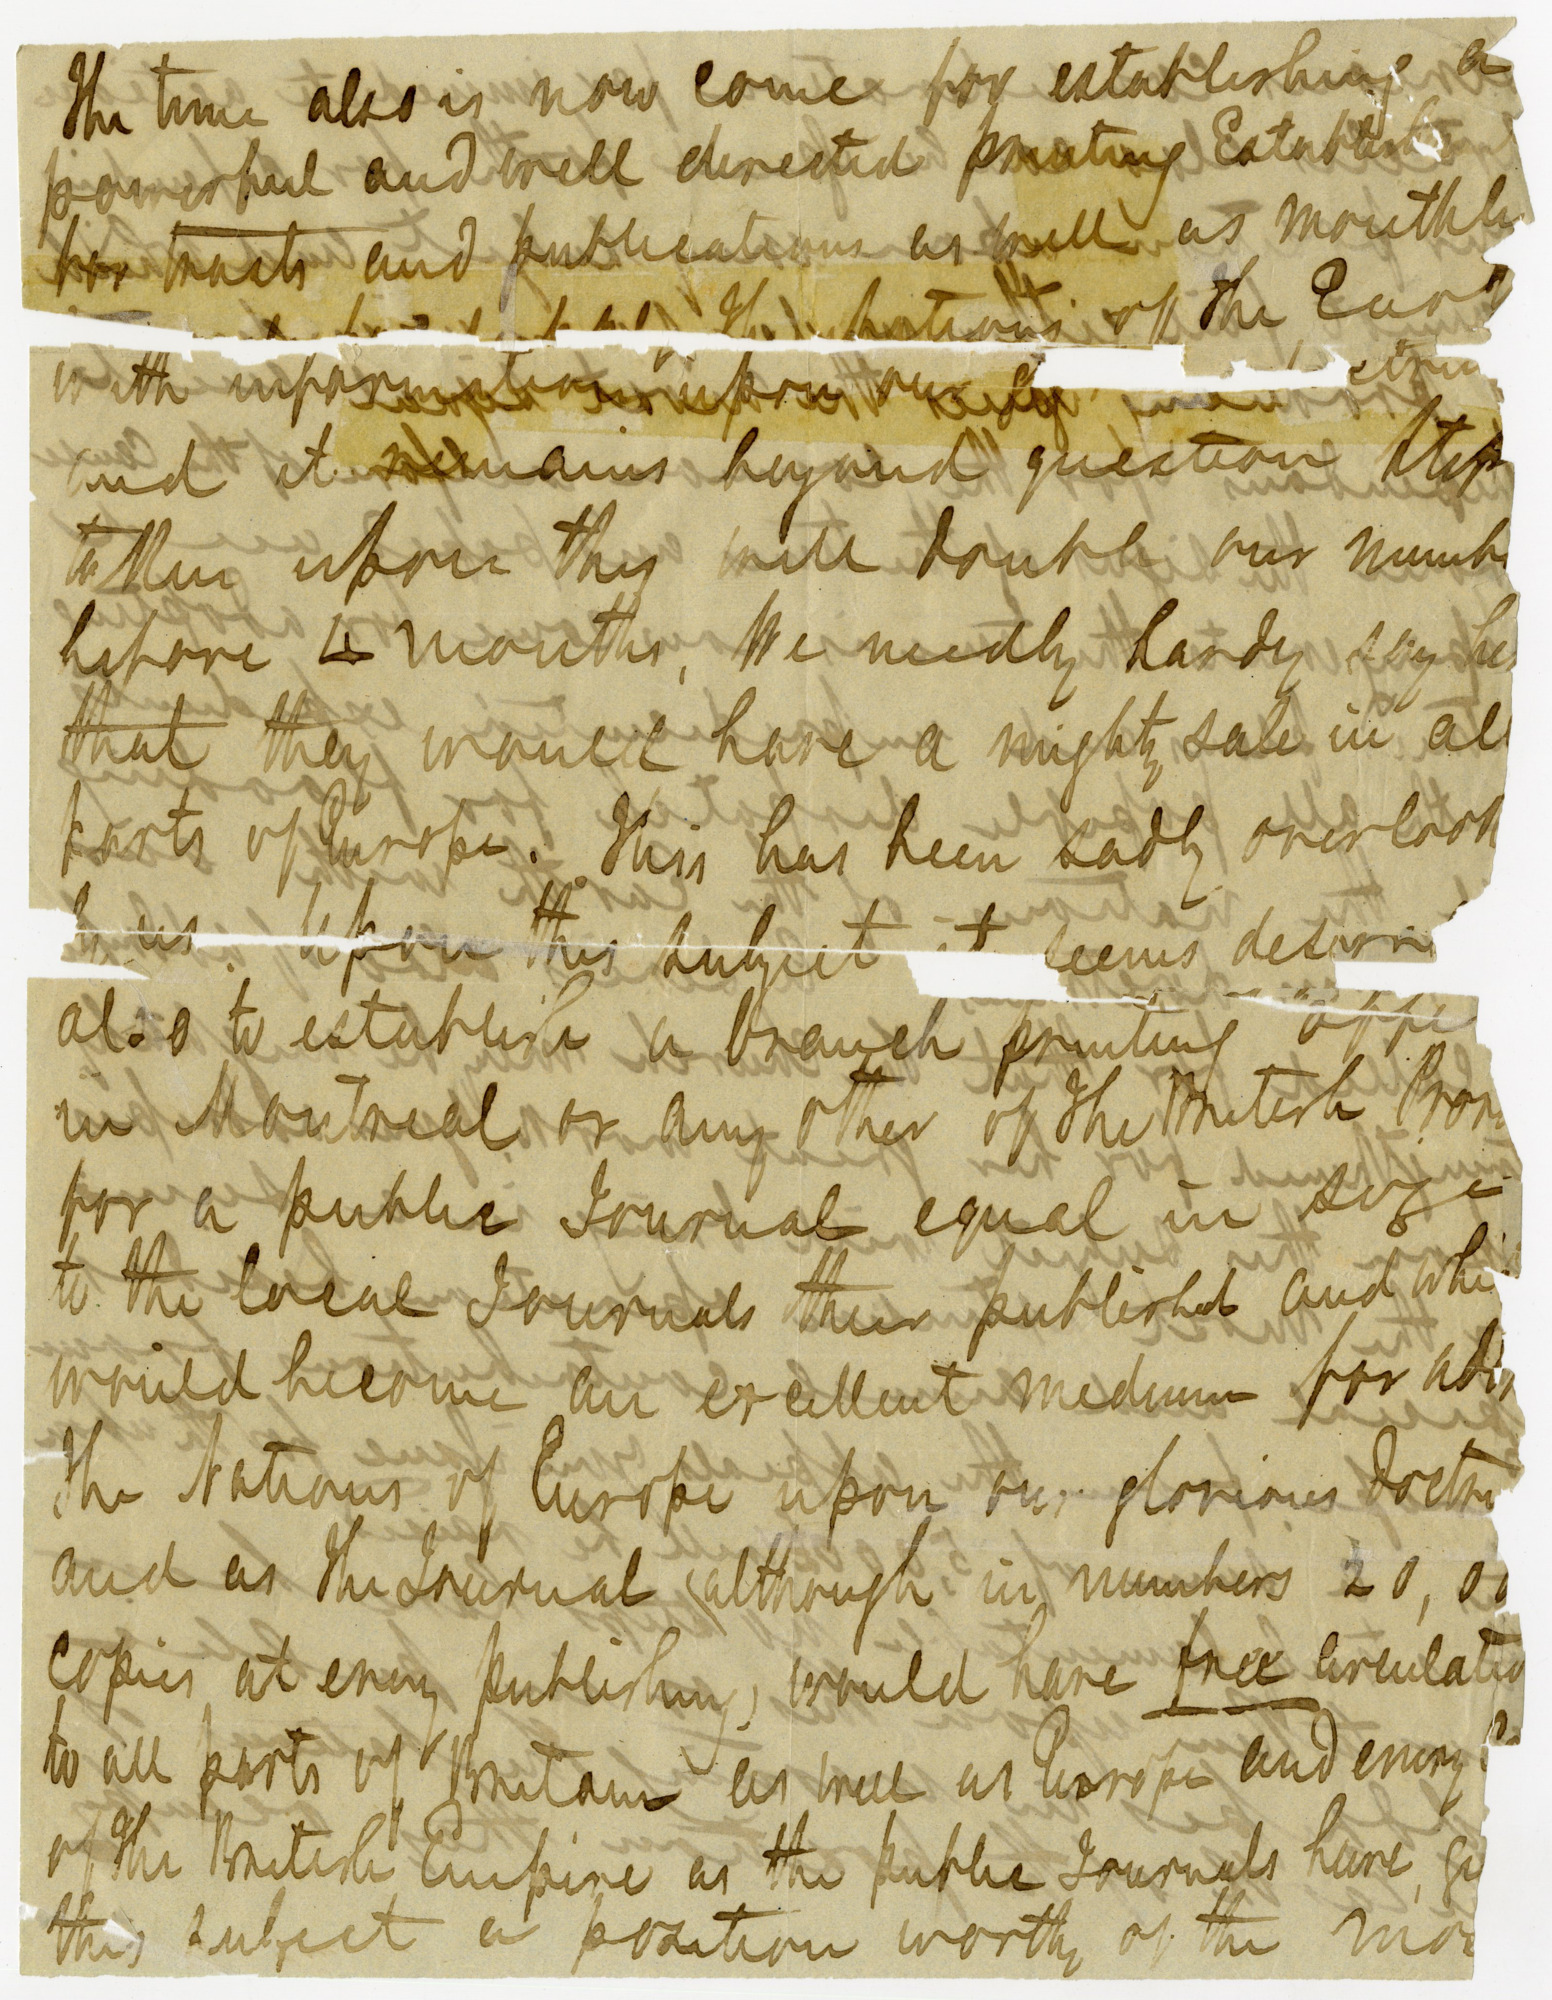 The time also is now come for establishing a
powerful and well directed printing Establish
for tracts and publications as well as monthl
the nations of the Eart
with information upon our
and it remains beyond question Step
taken upon they will double our numb
before 4 months, We needly hardy say he
that they would have a mighty sale in all
parts of Europe. This has been sadly overlook
by us. Upon this subject it seems desira
also to establish a branch printing offi
in Montreal or any other of the British Prov
for a public Journal equal in size
to the local Journals then published and whi
would become an excellent medium for ad
the Nations of Europe upon our glorious doctri
and as the Journal (although in numbers 20,00
copies at every publishing) would have free circulatio
to all parts of Britain as well as Europe and every
of the British Empire as the public Journals have, gi
this subject a position worthy of the mo